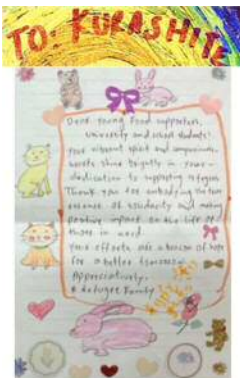 TO: KURASHITE
Dear young food supporters,
University and school students!
Your vibrant spirit and compassion
hearts shine brightly in your
dedication to supporting refugees
Thank you for embodying the true
essence of solidarity and making
positive impact on the life of
those in need
Your efforts are a beacon of hope
for a better tomorrow
Appreciatively,
A Refugee Family